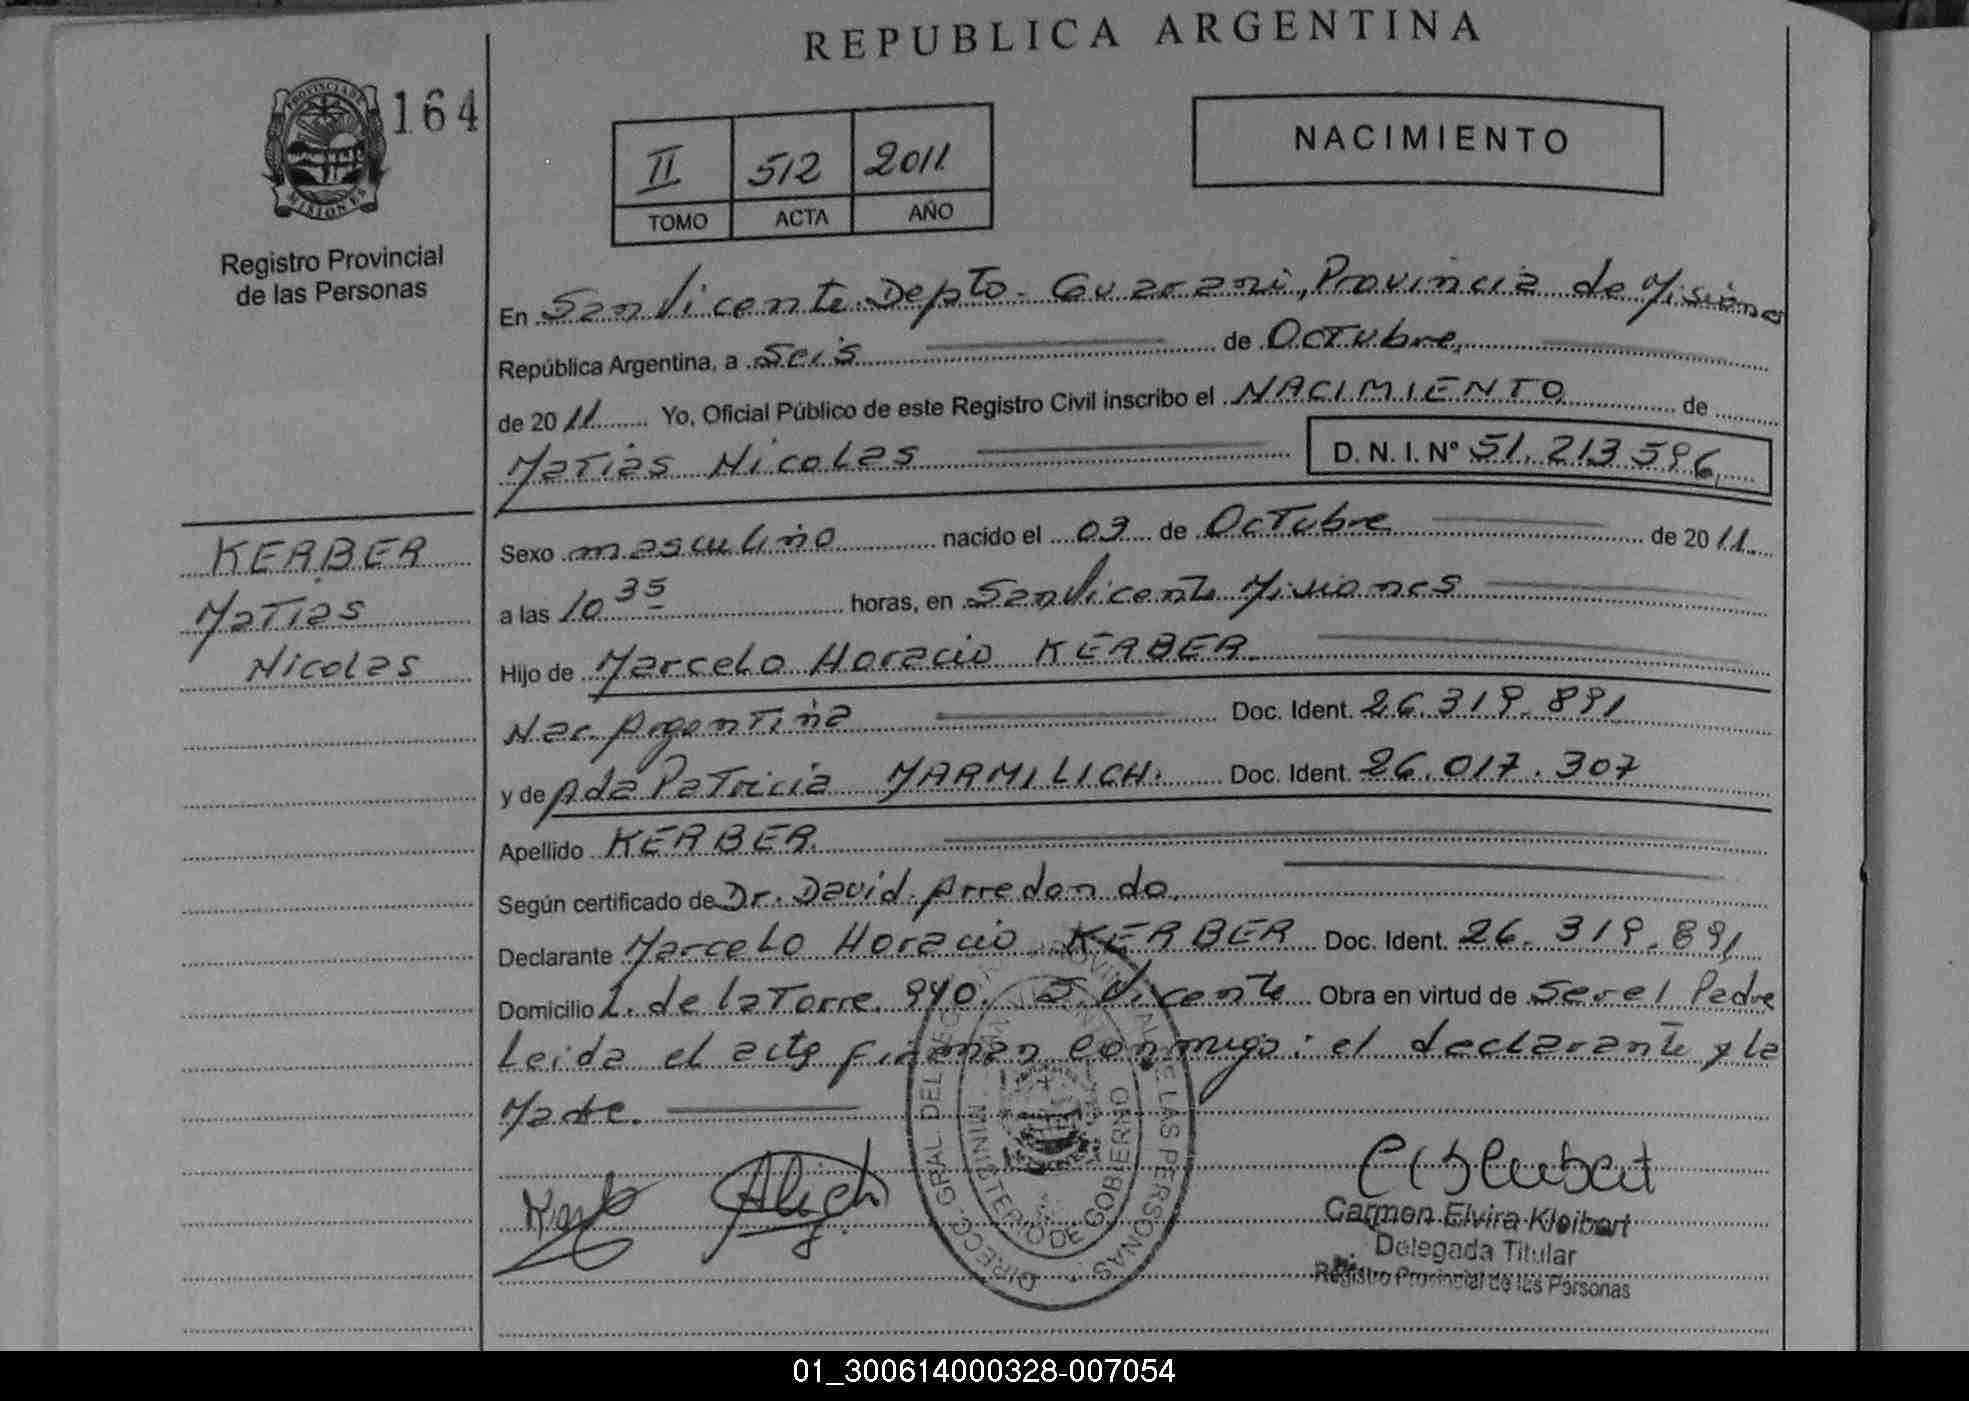 REPUBLICA ARGENTINA
PROVINCIA DE MISIONES
164
Registro Provincial
de las Personas
II 512 2011
TOMO ACTA AÑO
NACIMIENTO
En San Vicente Depto. Guarani, Provincia de Misiones
República Argentina, a Seis de Octubre,
de 2011 Yo, Oficial Público de este Registro Civil inscribo el NACIMIENTO de
Matias Nicolas D. N. I. Nº 51.213596
KERBER
Matias
Nicolas
Sexo masculino nacido el 03 de Octubre de 2011
a las 10 35 horas, en San Vicente Misiones
Hijo de Marcelo Horacio KERBER
Nac. Argentina Doc. Ident. 26.319.891
y de Ada Patricia MARMILICH. Doc. Ident. 26.017.307
Apellido KERBER.
Según certificado de Dr. David Arredondo,
Declarante Marcelo Horacio KERBER Doc. Ident. 26.319.891
Domicilio L. de la Torre. 940. S. Vicente Obra en virtud de Ser el Padre
Leida el acta firman conmigo: el declarante y la
Madre.
DIRECC. GRAL. DEL REGISTRO PROVINCIAL DE LAS PERSONAS
MINISTERIO DE GOBIERNO
Carmen Elvira Kleibert
Delegada Titular
Registro Provincial de las Personas
01_300614000328-007054